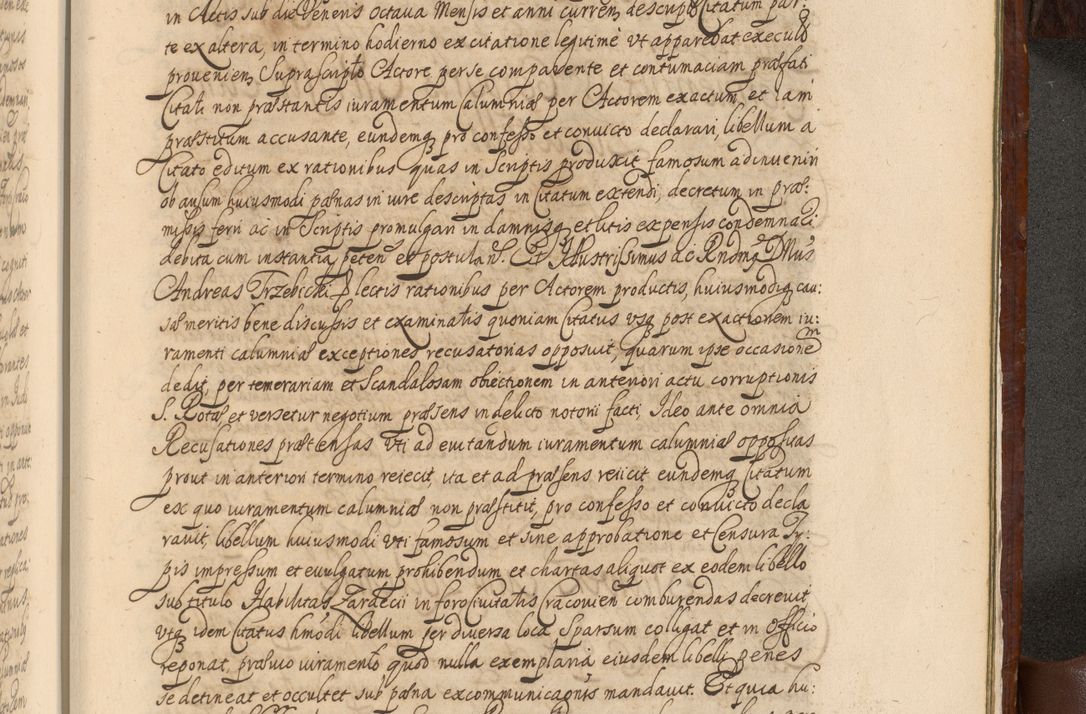 in Actis sub die Veneris octaua Mensis et anni curren, descript Citatum par:
te ex altera, in termino hodierno ex citatione legitimè vt apparebat executo
provenien, Suprascripto Actore per se comparente et contumaciam præfati
Citati non præstantis iuramentum Calumniæ per Actorem exactum, et iam
præstitum accusante, eundemq pro confesso et convicto declarari, libellum a
Citato editum ex rationibus quas in Scriptis produxit famosum adinveniri
ob ausum huiusmodi pænas in iure descriptas in Citatum extendi, decretum in præ:
missis ferri ac in Scriptis promulgari in damnisq et litis expensis condemnaci
debita cum instantia peten et postulan. Et Illustrissimus ac Rndmq Dnus
Andreas Trzebicki lectis rationibus per Actorem productis, huiusmodiq cau:
sæ meritis bene discussis et examinatis quoniam Citatus vsq post exactionem iu:
ramenti calumniæ exceptiones recusatorias opposuit, quarum ipse occasionem
dedit, per temerariam et Scandalosam obiectionem in anteriori actu corruptionis
S. Rotæ, et versetur negotium præsens in delicto notorii facti, Ideo ante omnia
Recusationes prætensas vti ad evitandum iuramentum calumniæ oppositas
prout in anteriori termino reiecit, ita et ad præsens reiicit eundemq Citatum
ex quo iuramentum calumniæ non præstitit, pro confesso et convicto decla
ravit, libellum huiusmodi vti famosum et sine approbatione et Censura Ty-
pis impressum et evulgatum prohibendum et chartas aliquot ex eodem libello
sub titulo Habilitas Zardecii in foro Civitatis Cracovien comburendas decrevit
vtq idem Citatus hmodi libellum per diversa loca Sparsum colligat et in Officio
reponat, prævio iuramento quod nulla exemplaria eiusdem libelli penes
se detineat et occultet sub pæna excommunicaonis mandavit. Et quia hu: